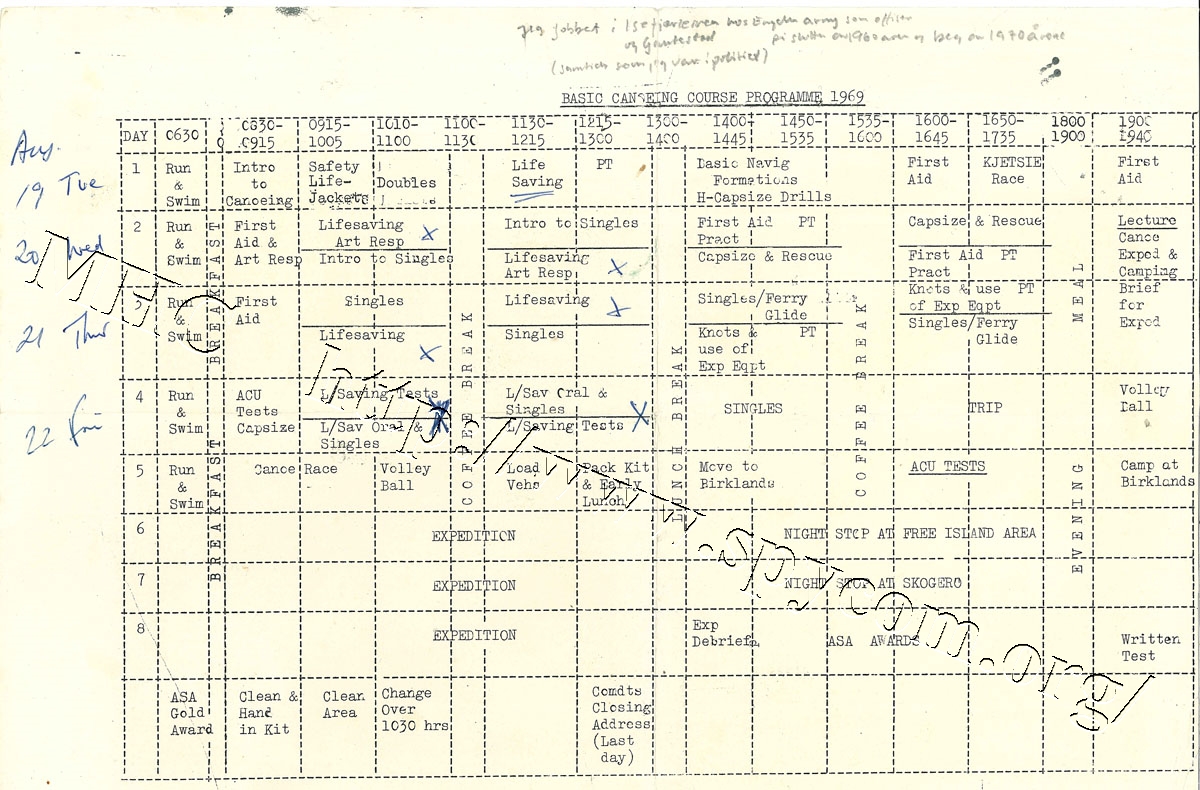 jeg jobbet i Isefjorden hos Engelm army som offiser
og
(samtidig som jeg var i politiet)
BASIC CANOEING COURSE PROGRAMME 1969
DAY 0630 0830-0915 0915-1005 1010-1100 1100-1130 1130-1215 1215-1300 1300-1400 1400-1445 1450-1535 1535-1600 1600-1645 1650-1735 1800 1900 1900 1940
Aug.
19 Tue
1 Run & Swim Intro to Canoeing Safety Life-Jackets Doubles Life Saving PT Basic Navig Formations H-Capsize Drills First Aid KJETSIE Race First Aid
20 Wed
2 Run & Swim First Aid & Art Resp Lifesaving Art Resp X Intro to Singles First Aid PT Pract Capsize & Rescue Lecture Canoe Exped & Camping
Intro to Singles Lifesaving Art Resp X Capsize & Rescue First Aid PT Pract
21 Thur
3 Run & Swim First Aid Singles Lifesaving X Singles/Ferry Glide Knots & use PT of Exp Eqpt Brief for Exped
Lifesaving X Singles Knots & PT use of Exp Eqpt Singles/Ferry Glide
22 Fri
4 Run & Swim ACU Tests Capsize L/Saving Tests L/Sav Oral & Singles SINGLES TRIP Volley Ball
L/Sav Oral & Singles X L/Saving Tests X
5 Run & Swim Canoe Race Volley Ball Load Vehs Pack Kit & Early Lunch Move to Birklands ACU TESTS Camp at Birklands
6 EXPEDITION NIGHT STOP AT FREE ISLAND AREA
7 EXPEDITION NIGHT STOP AT SKOGERO
8 EXPEDITION Exp Debrief ASA AWARDS Written Test
ASA Gold Award Clean & Hand in Kit Clean Area Change Over 1030 hrs Comdts Closing Address (Last day)
BREAKFAST
BREAKFAST
COFFEE BREAK
LUNCH BREAK
COFFEE BREAK
EVENING MEAL